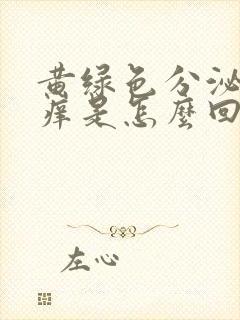 黄绿色分泌
痒是怎麼回
左心